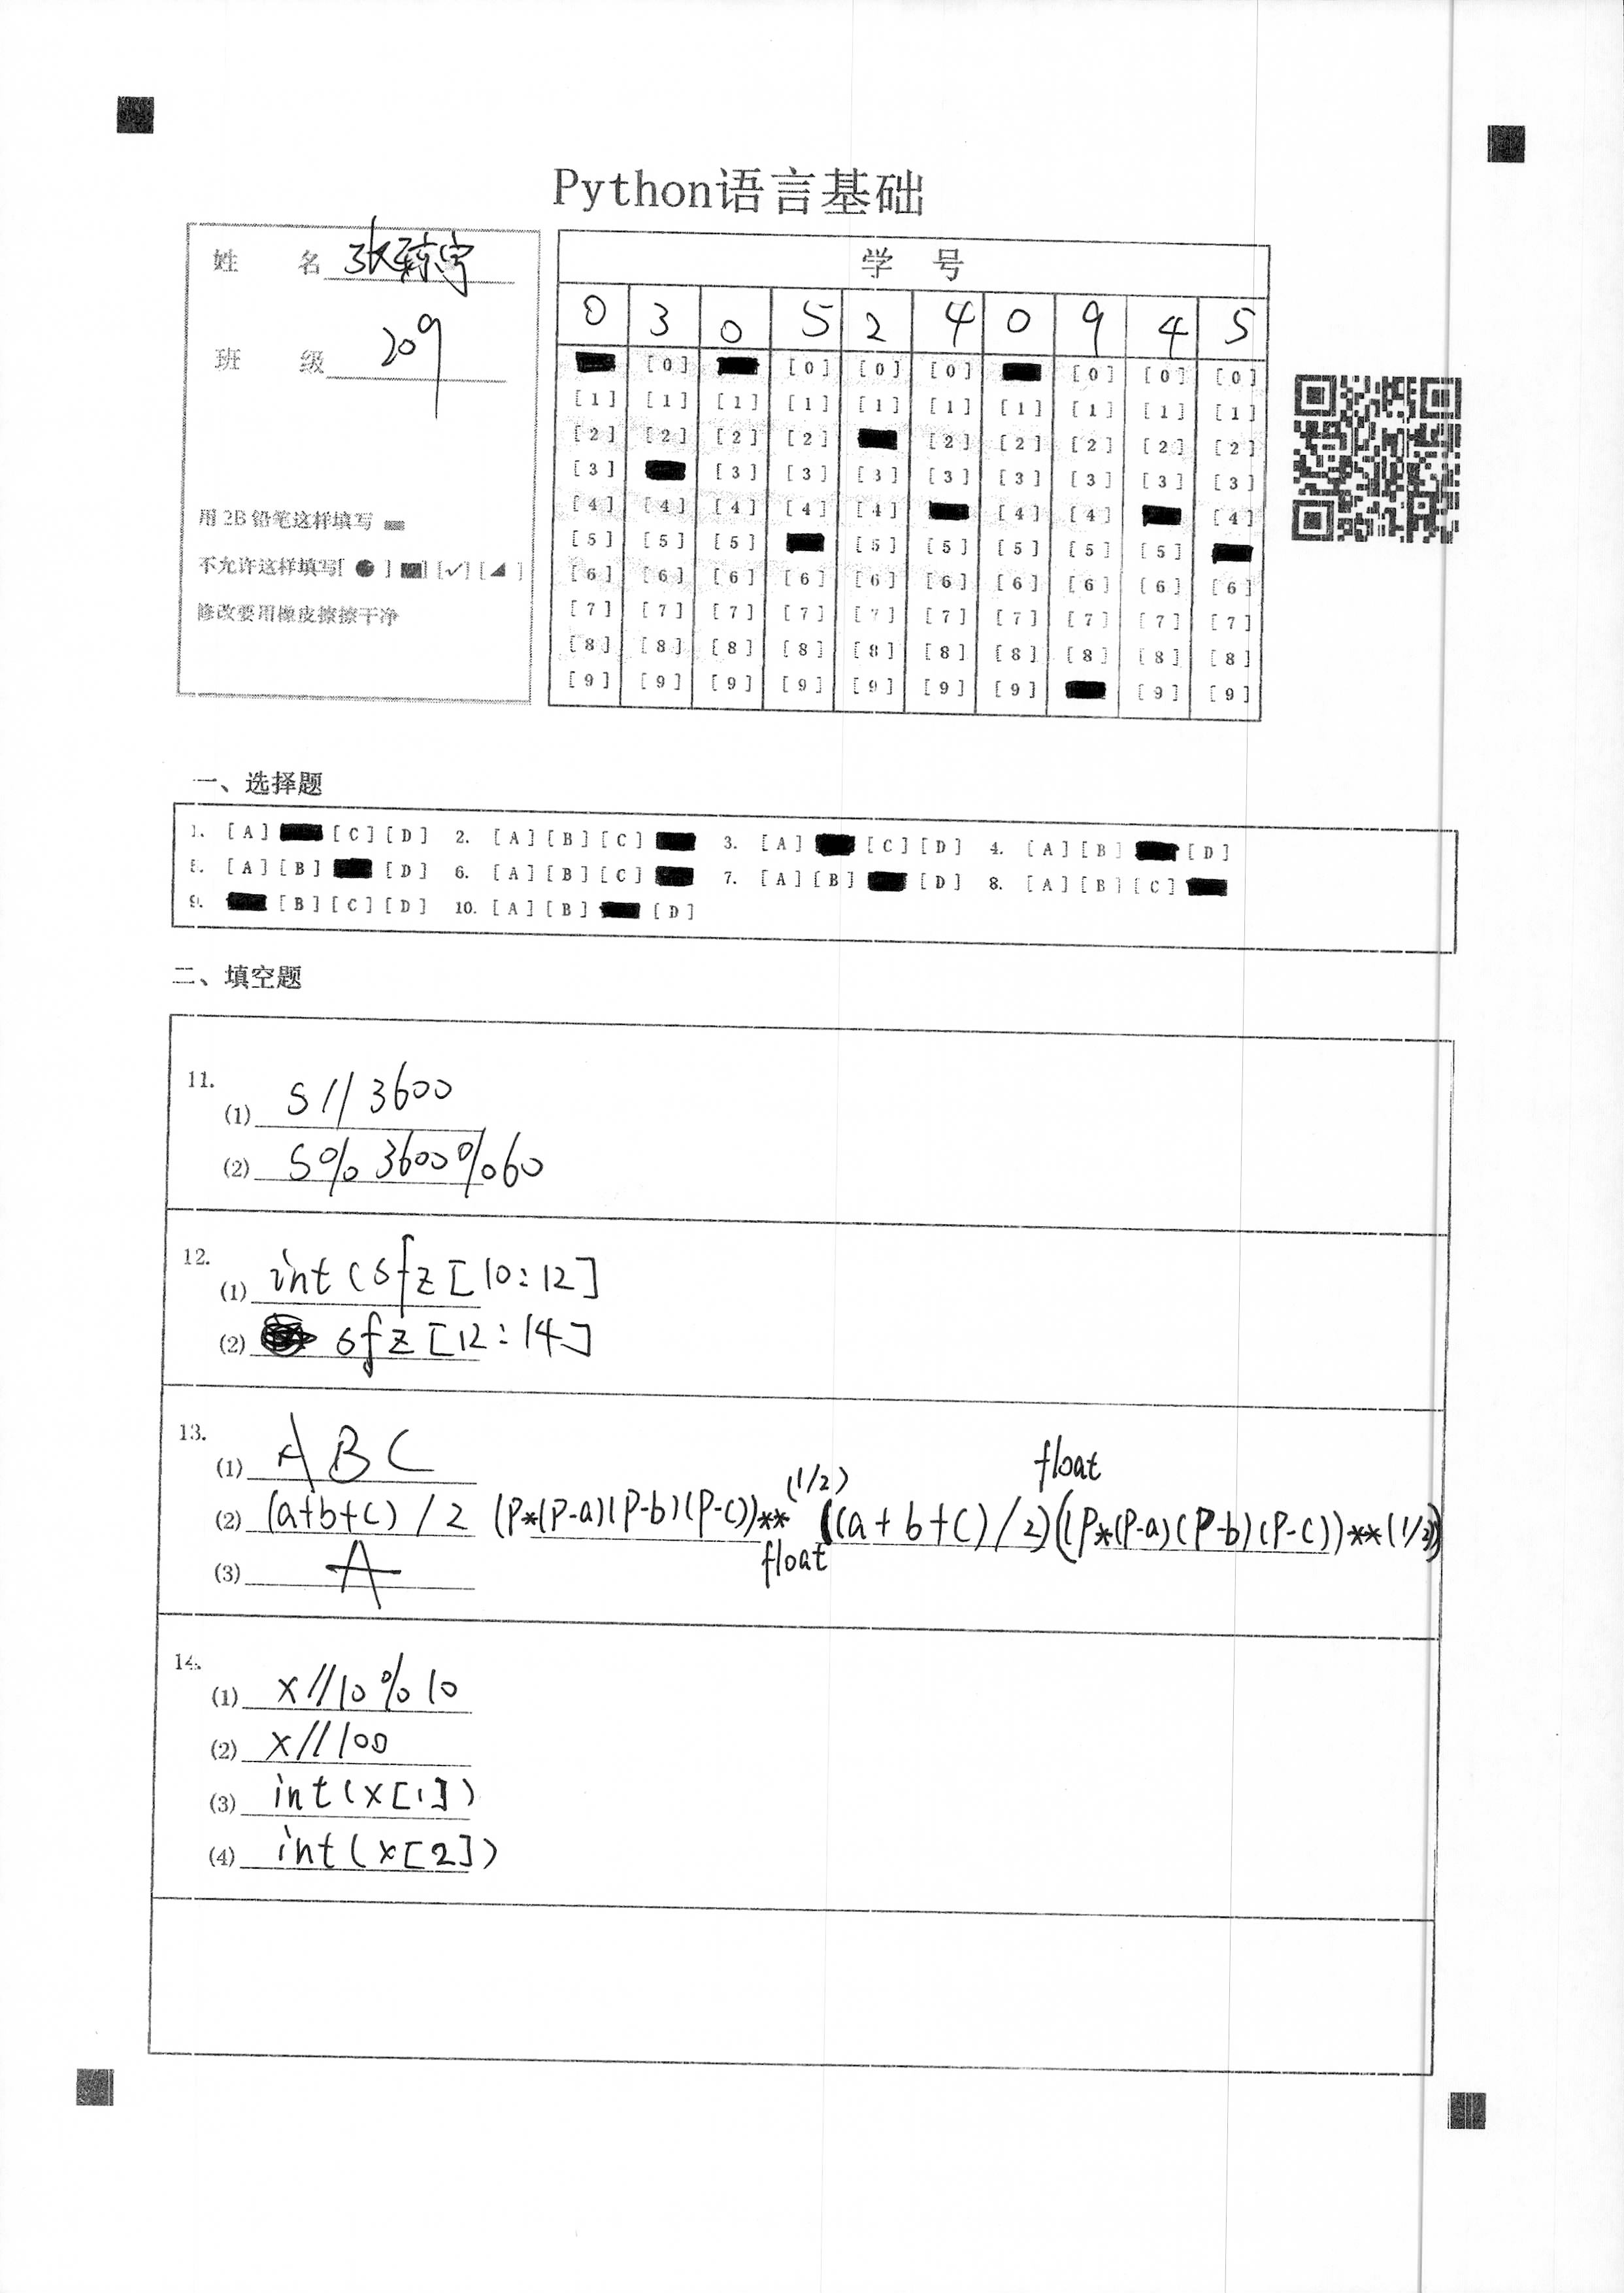 Python语言基础
姓 名 张
班 级 209
用 2B 铅笔这样填写
不允许这样填写[ ● ] [■] [✓] [◢ ]
修改要用橡皮擦擦干净
学 号
0 3 0 5 2 4 0 9 4 5
[0] [0] [0] [0] [0] [0] [0]
[1] [1] [1] [1] [1] [1] [1] [1] [1] [1]
[2] [2] [2] [2] [2] [2] [2] [2] [2]
[3] [3] [3] [3] [3] [3] [3] [3] [3]
[4] [4] [4] [4] [4] [4] [4] [4]
[5] [5] [5] [5] [5] [5] [5] [5]
[6] [6] [6] [6] [6] [6] [6] [6] [6] [6]
[7] [7] [7] [7] [7] [7] [7] [7] [7] [7]
[8] [8] [8] [8] [8] [8] [8] [8] [8] [8]
[9] [9] [9] [9] [9] [9] [9] [9] [9]
一、选择题
1. [A] [C] [D] 2. [A] [B] [C] 3. [A] [C] [D] 4. [A] [B] [D]
5. [A] [B] [D] 6. [A] [B] [C] 7. [A] [B] [D] 8. [A] [B] [C]
9. [B] [C] [D] 10. [A] [B] [D]
二、填空题
11.
(1) s//3600
(2) s%3600%60
12.
(1) int(sfz[10:12]
(2) sfz[12:14]
13.
(1) ABC
(2) (a+b+c)/2 (p*(p-a)(p-b)(p-c))**(1/2) float((a+b+c)/2) float((p*(p-a)(p-b)(p-c))**(1/2))
(3) A
14.
(1) x//10%10
(2) x//100
(3) int(x[1])
(4) int(x[2])